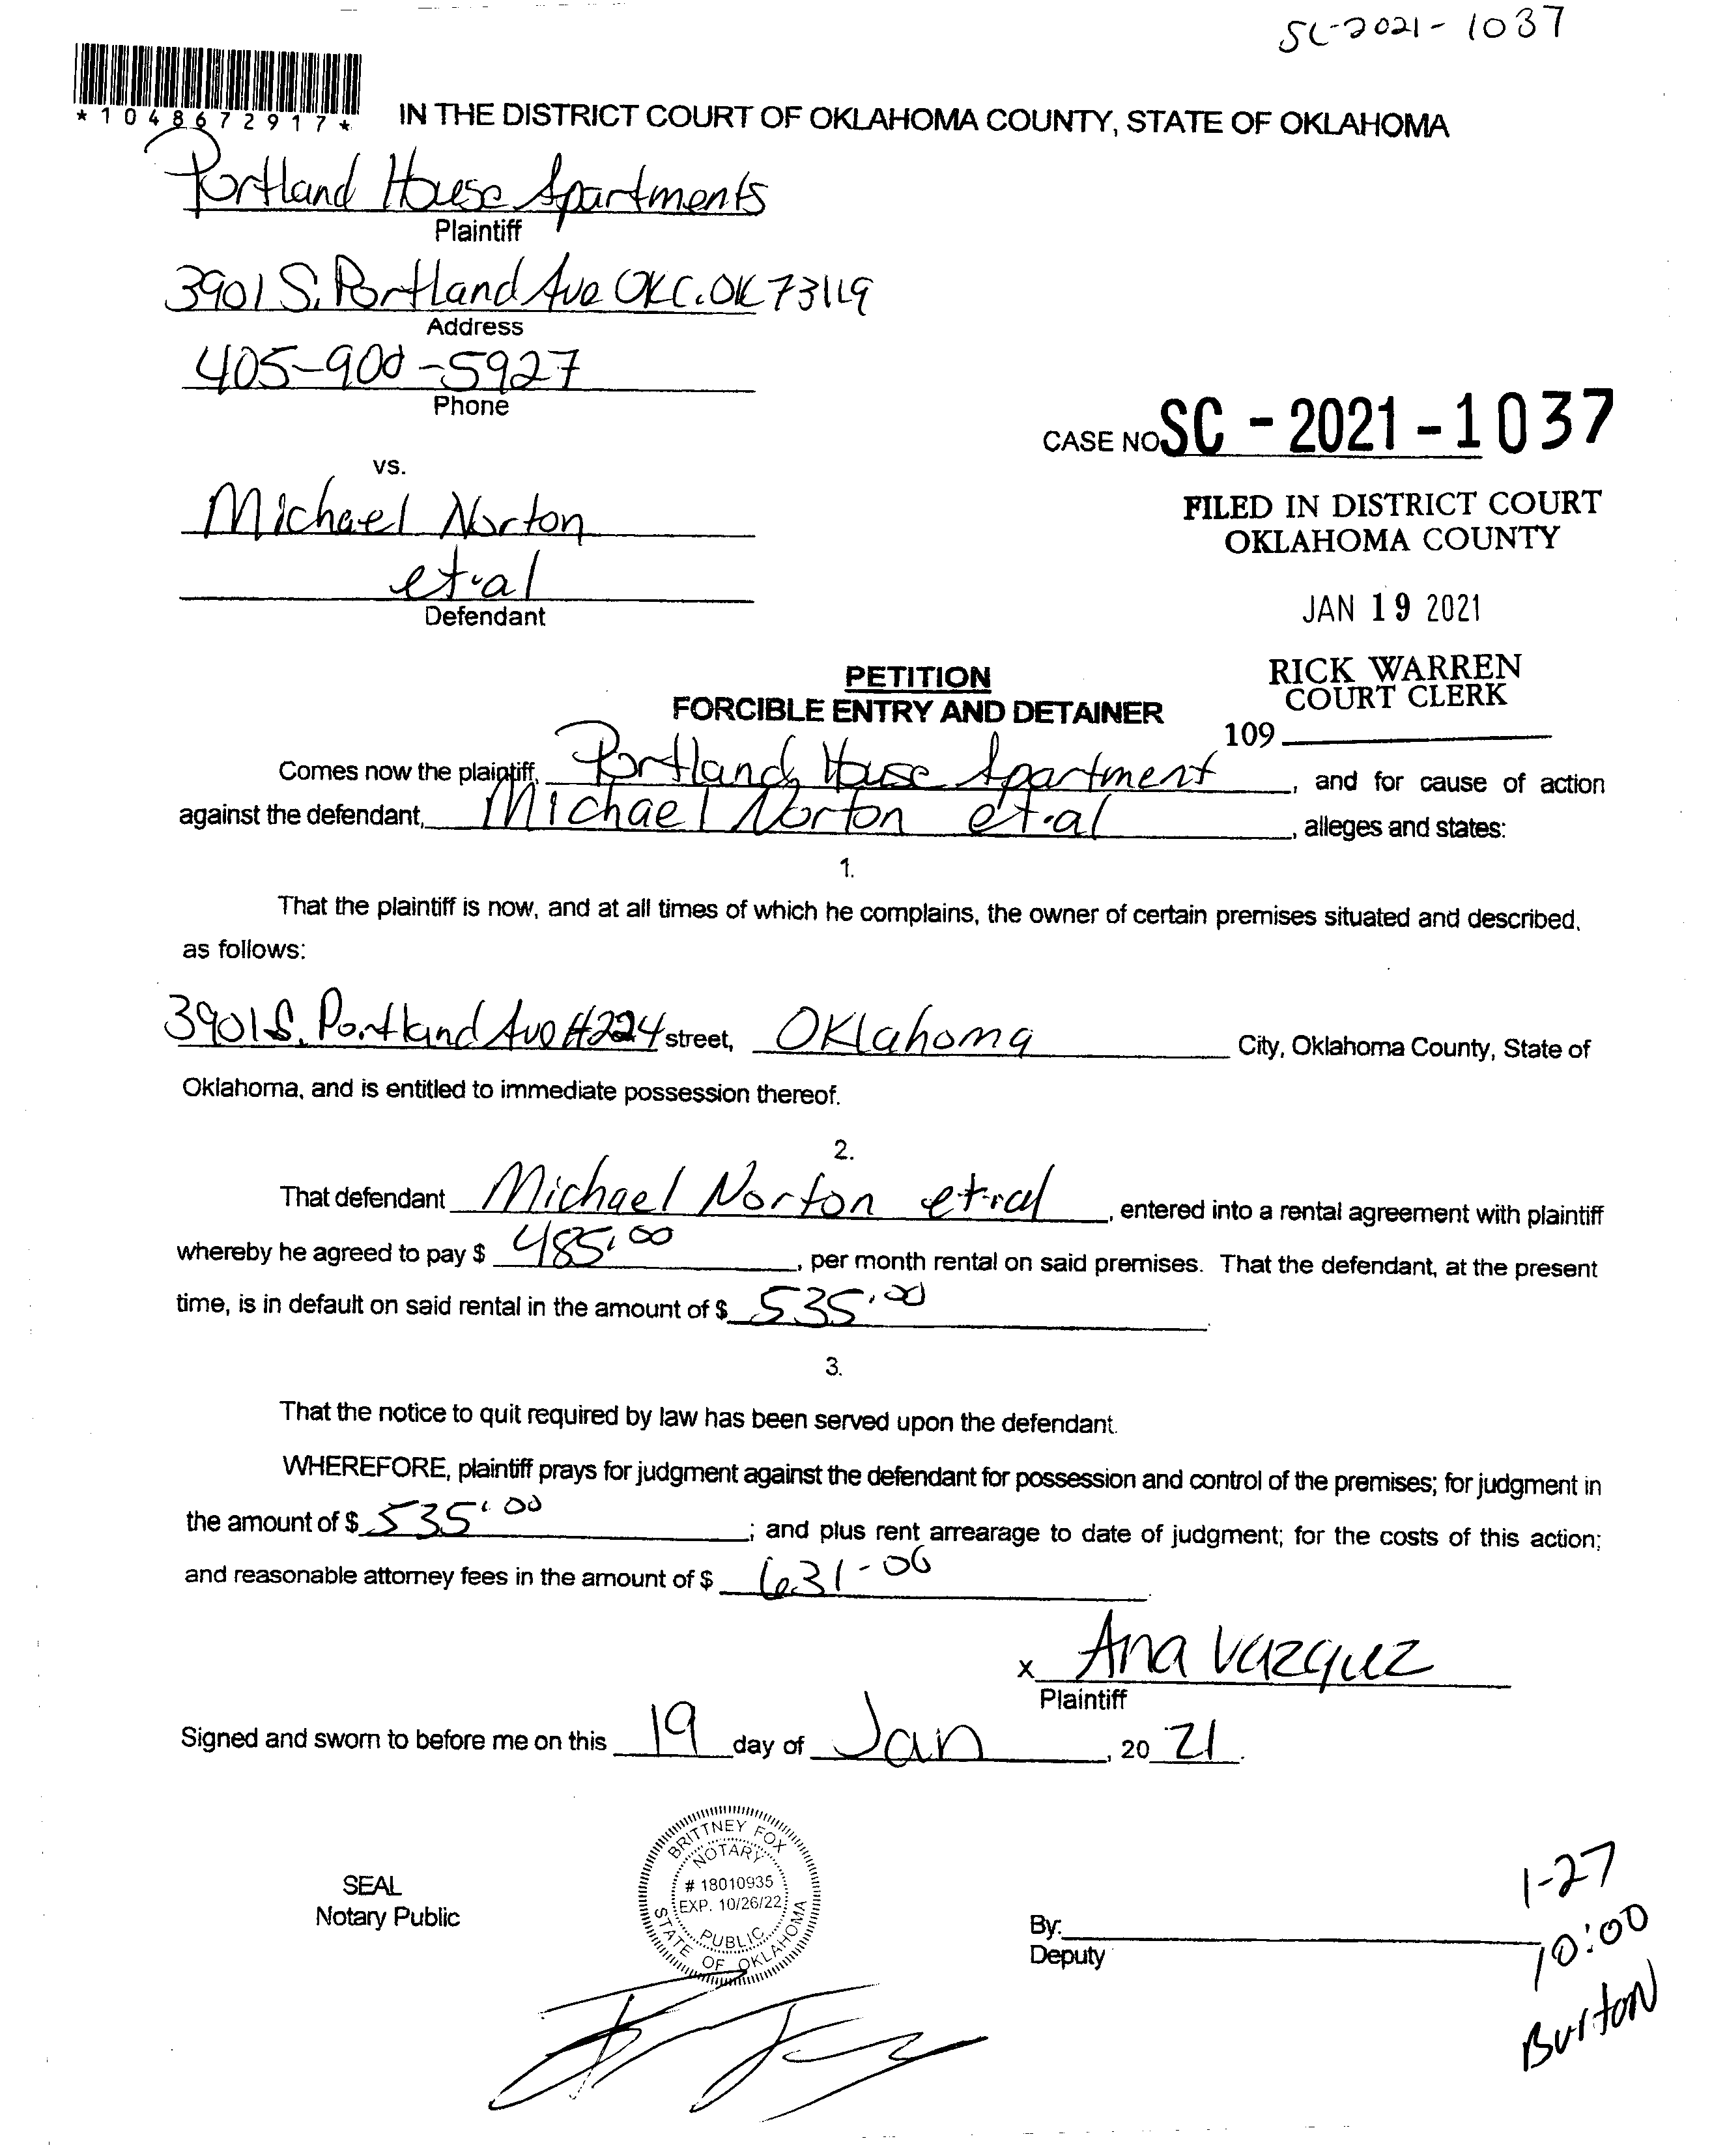 SC-2021-1037
*1048672917*
IN THE DISTRICT COURT OF OKLAHOMA COUNTY, STATE OF OKLAHOMA
Portland House Apartments
Plaintiff
3901 S. Portland Ave OKC. OK 73119
Address
405-900-5927
Phone
CASE NO SC - 2021 - 1037
vs.
Michael Norton
et.al
Defendant
FILED IN DISTRICT COURT
OKLAHOMA COUNTY
JAN 19 2021
RICK WARREN
COURT CLERK
109
PETITION
FORCIBLE ENTRY AND DETAINER
Comes now the plaintiff, Portland House Apartment, and for cause of action
against the defendant, Michael Norton et.al, alleges and states:
1.
That the plaintiff is now, and at all times of which he complains, the owner of certain premises situated and described,
as follows:
3901 S. Portland Ave #224 street, Oklahoma City, Oklahoma County, State of
Oklahoma, and is entitled to immediate possession thereof.
2.
That defendant Michael Norton et.al, entered into a rental agreement with plaintiff
whereby he agreed to pay $ 485.00, per month rental on said premises. That the defendant, at the present
time, is in default on said rental in the amount of $ 535.00.
3.
That the notice to quit required by law has been served upon the defendant.
WHEREFORE, plaintiff prays for judgment against the defendant for possession and control of the premises; for judgment in
the amount of $ 535.00; and plus rent arrearage to date of judgment; for the costs of this action;
and reasonable attorney fees in the amount of $ 631-00
x Ana Vazquez
Plaintiff
Signed and sworn to before me on this 19 day of Jan, 20 21.
SEAL
Notary Public
BRITTNEY FOX
NOTARY
# 18010935
EXP. 10/26/22
PUBLIC
STATE OF OKLAHOMA
By:
Deputy
1-27
10:00
Burton